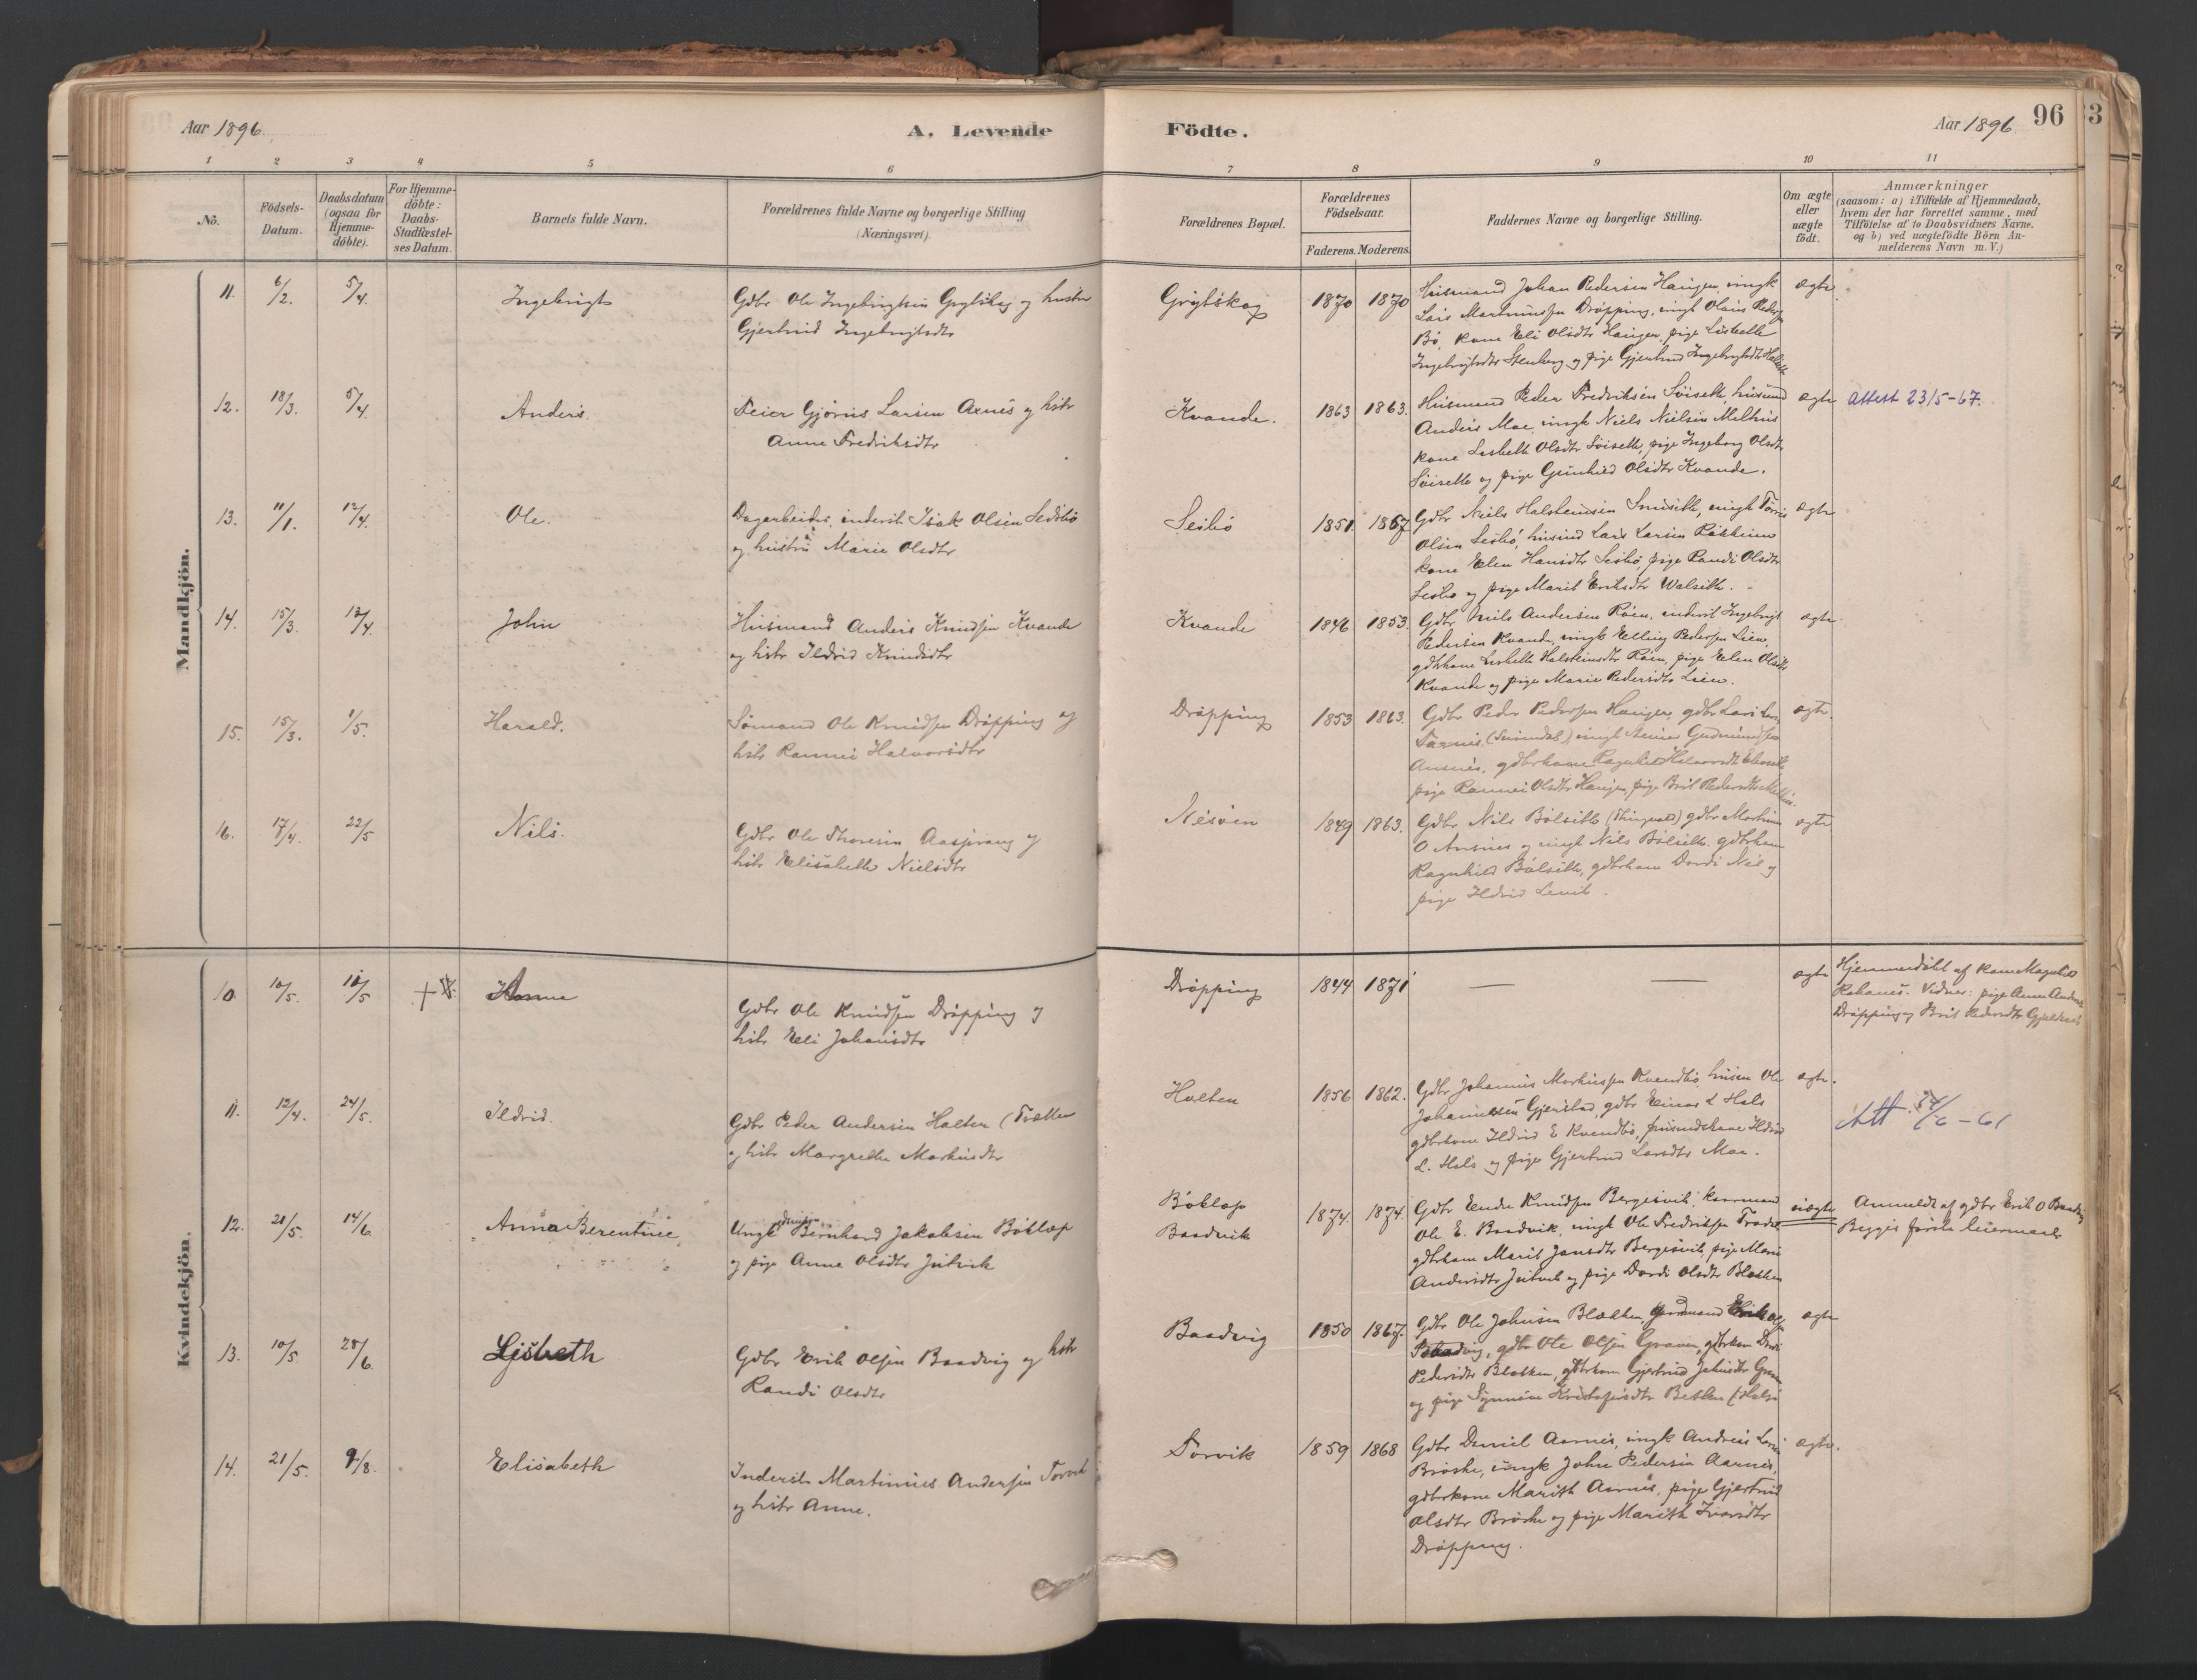 Aar 1896.
A. Levende
Födte.
Aar 1896.
96
3
1 2 3 4 5 6 7 8 9 10 11
No.
Födsels-
Datum.
Daabsdatum
(ogsaa for
Hjemme-
döbte).
For Hjemme-
döbte:
Daabs-
Stadfæstel-
ses Datum.
Barnets fulde Navn.
Forældrenes fulde Navne og borgerlige Stilling
(Næringsvei).
Forældrenes Bopæl.
Forældrenes
Födselsaar.
Faderens. Moderens.
Faddernes Navne og borgerlige Stilling.
Om ægte
eller
uægte
födt.
Anmærkninger
(saasom: a) i Tilfælde af Hjemmedaab,
hvem der har forrettet samme, med
Tilföielse af to Daabsvidners Navne,
og b) ved uægtefödte Börn An-
melderens Navn m. V.)
Mandkjön.
11. 6/2. 5/4. Ingebrigt
Gdbr Ole Ingebrigtsen Grytskog og hustru
Gjertrud Ingebrigtsdtr
Grytskog 1870 1870
Husmand Johan Pedersen Haugen, ungk
Lars Martinussen Dröpping, ungk Olaus Peders
Bö, kone Eli Olsdtr Haugen, pige Lisbeth
Ingebrigtsdtr Stenberg og pige Gjertrud Ingebrigtsdtr
ægte
12. 18/3. 5/4. Anders.
Feier Gjörus Larsen Axnes og hstr
Anne Fredriksdtr
Kvande. 1863 1863.
Husmand Peder Fredriksen Söisett, husmd
Anders Moe, ungk Niels Nielsen Melhus
kone Lisbeth Olsdtr Söiseth, pige Ingeborg Olsdtr
Söiseth og pige Gunhild Olsdtr Kvande.
ægte Attest 23/5-67.
13. 11/1. 12/4. Ole.
Dagarbeider, inderst Isak Olsen Sedsbö
og hustru Marie Olsdtr
Seibö 1851 1867
Gdbr Niels Halsteinsen Smiseth, ungk Torris
Olsen Seibö, husmd Lars Larsen Rökkum
kone Elen Hansdtr Seibö, pige Randi Olsdtr
Seibö og pige Marit Eriksdtr Walseth.
ægte
14. 15/3. 12/4. John
Husmand Anders Knudsen Kvande
og hstr Ildrid Knudsdtr
Kvande 1846 1853.
Gdbr Nils Andersen Röen, inderst Ingebrigt
Pedersen Kvande, ungk Elling Pedersen Lien,
gdbrkone Lisbeth Halsteinsdtr Röen, pige Elen Olsdtr
Kvande og pige Marie Pedersdtr Lien.
ægte
15. 15/3. 1/5. Harald.
Sömand Ole Knudsen Dröpping og
hstr Rannei Halvorsdtr
Dröpping 1853 1863.
Gdbr Peder Pedersen Haugen, gdbr Lars
ungk Gudmundsen
gdbrkone Ragnhild Halvorsdtr
pige Rannei Olsdtr Haugen, pige Brit Pedersdtr
ægte.
16. 17/4. 22/5 Nils.
Gdbr Ole Thoresen Aasprang og
hstr Elisabeth Nielsdtr
Nesöen 1849 1863.
Gdbr Nils Bölseth (Thingvold) gdbr Martinus
O Aasnes og ungk Nils Bölseth, gdbrkone
Ragnhild Bölseth, gdbrkone Dordi Nes og
pige Ildrid
ægte
Kvindekjön.
10. 10/5. 10/5 + Anna
Gdbr Ole Knudsen Dröpping og
hstr Eli Johansdtr
Dröpping 1844 1871
— —
ægte
Hjemmedöbt af kone Magnhild
Vidner: pige Anne Anders
Dröpping og Brit Pedersdtr Gjeldnes
11. 12/4. 24/5. Ildrid.
Gdbr Peder Andersen Halten (
og hstr Margrethe Markusdtr
Holten 1856 1862.
Gdbr Johannes Markussen Kvendbö, husm Ole
Johannesen Gjerstad, gdbr Einar L Hals
gdbrkone Ildrid E Kvendbö, husmdskone Ildrid
L. Hals og pige Gjertrud Larsdtr Moe.
ægte.
Att 24/6-61
12. 21/5. 14/6. Anna Berentine
Ungk Bernhard Jakobsen Böklep
og pige Anne Olsdtr Jutvik
Böklep
Baadvik
1874. 1874.
Gdbr Endre Knudsen Bergesvik,
Ole E. Baadvik, ungk Ole Fredriksen
gdbrkone Marit Jonsdtr Bergesvik, pige Marie
Andersdtr Jutvik og pige Dordi Olsdtr Blekken
uægte
Anmeldt af gdbr Erik O Baadvig
Begges förste leiermaal
13. 10/5. 28/6. Lisbeth
Gdbr Erik Olsen Baadvig og hstr
Randi Olsdtr
Baadvig 1850 1867.
Gdbr Ole Johnsen Blekken,
gdbr Ole Olsen Graven, gdbrkone Dordi
Pedersdtr Blekken, gdbrkone Gjertrud Johnsdtr
og pige Synnöve Kristofersdtr
ægte
14. 21/5. 9/8. Elisabeth
Inderst Martinus Andersen Torvik
og hstr Anne.
Torvik 1859 1868
Gdbr Daniel Aarnes, ungk Andreas
Bröske, ungk John Pedersen Aarnes,
gdbrkone Marith Aarnes, pige Gjertrud
Olsdtr Bröske og pige Marith Ivarsdtr
Dröpping.
ægte.